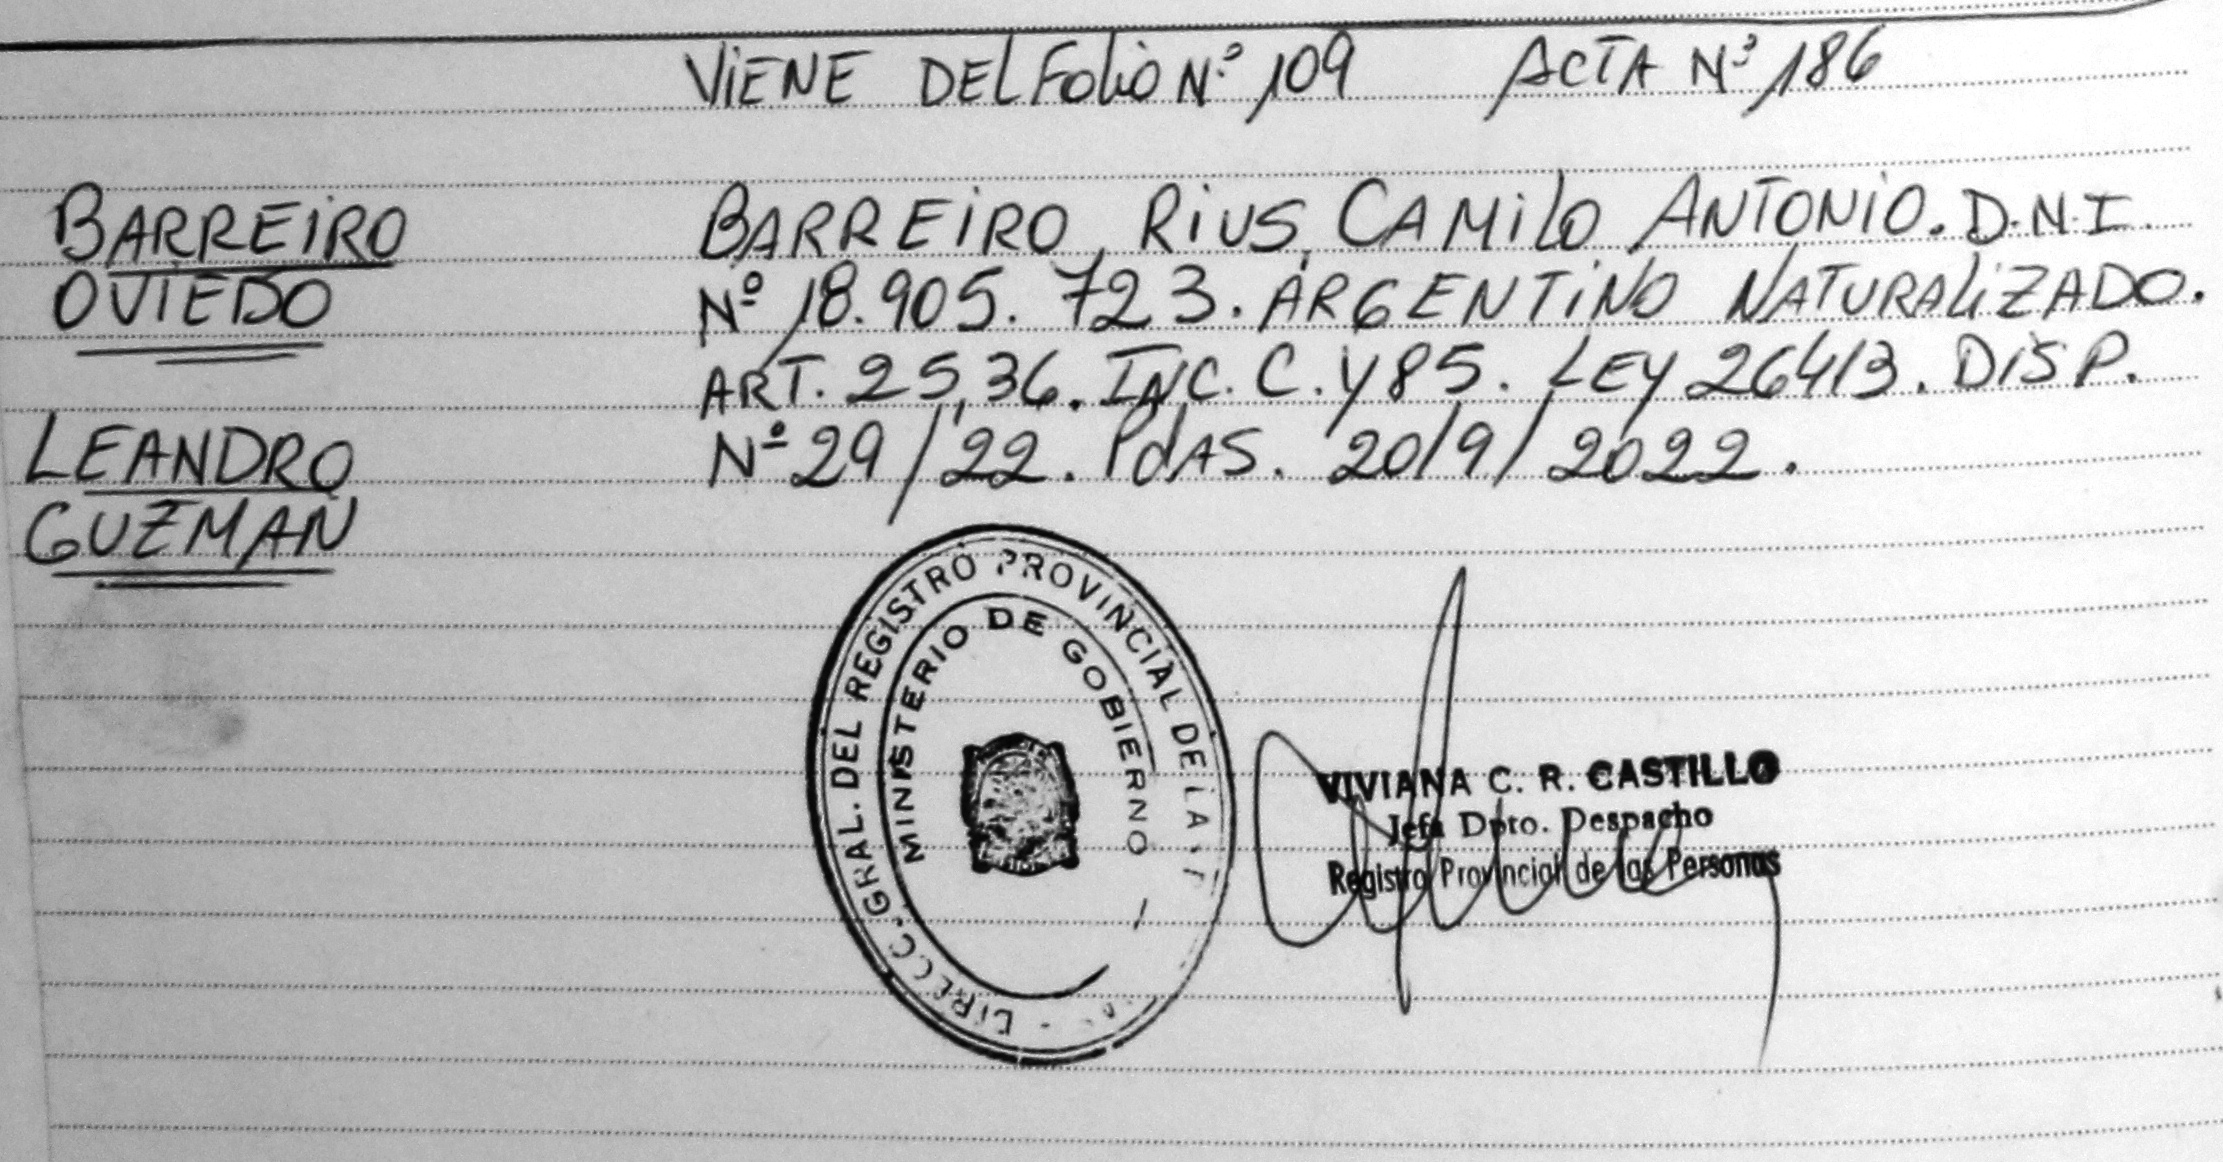 VIENE DEL FOLIO Nº 109 ACTA Nº 186
BARREIRO
OVIEDO
LEANDRO
GUZMAN
BARREIRO, RIUS, CAMILO ANTONIO. D.N.I.
Nº 18.905.723. ARGENTINO NATURALIZADO.
ART. 25, 36. INC. C. Y 85. LEY 26413. DISP.
Nº 29/22. PdAS. 20/9/2022.
DIRECC. GRAL. DEL REGISTRO PROVINCIAL DE LA
MINISTERIO DE GOBIERNO
VIVIANA C. R. CASTILLO
Jefa Dpto. Despacho
Registro Provincial de las Personas